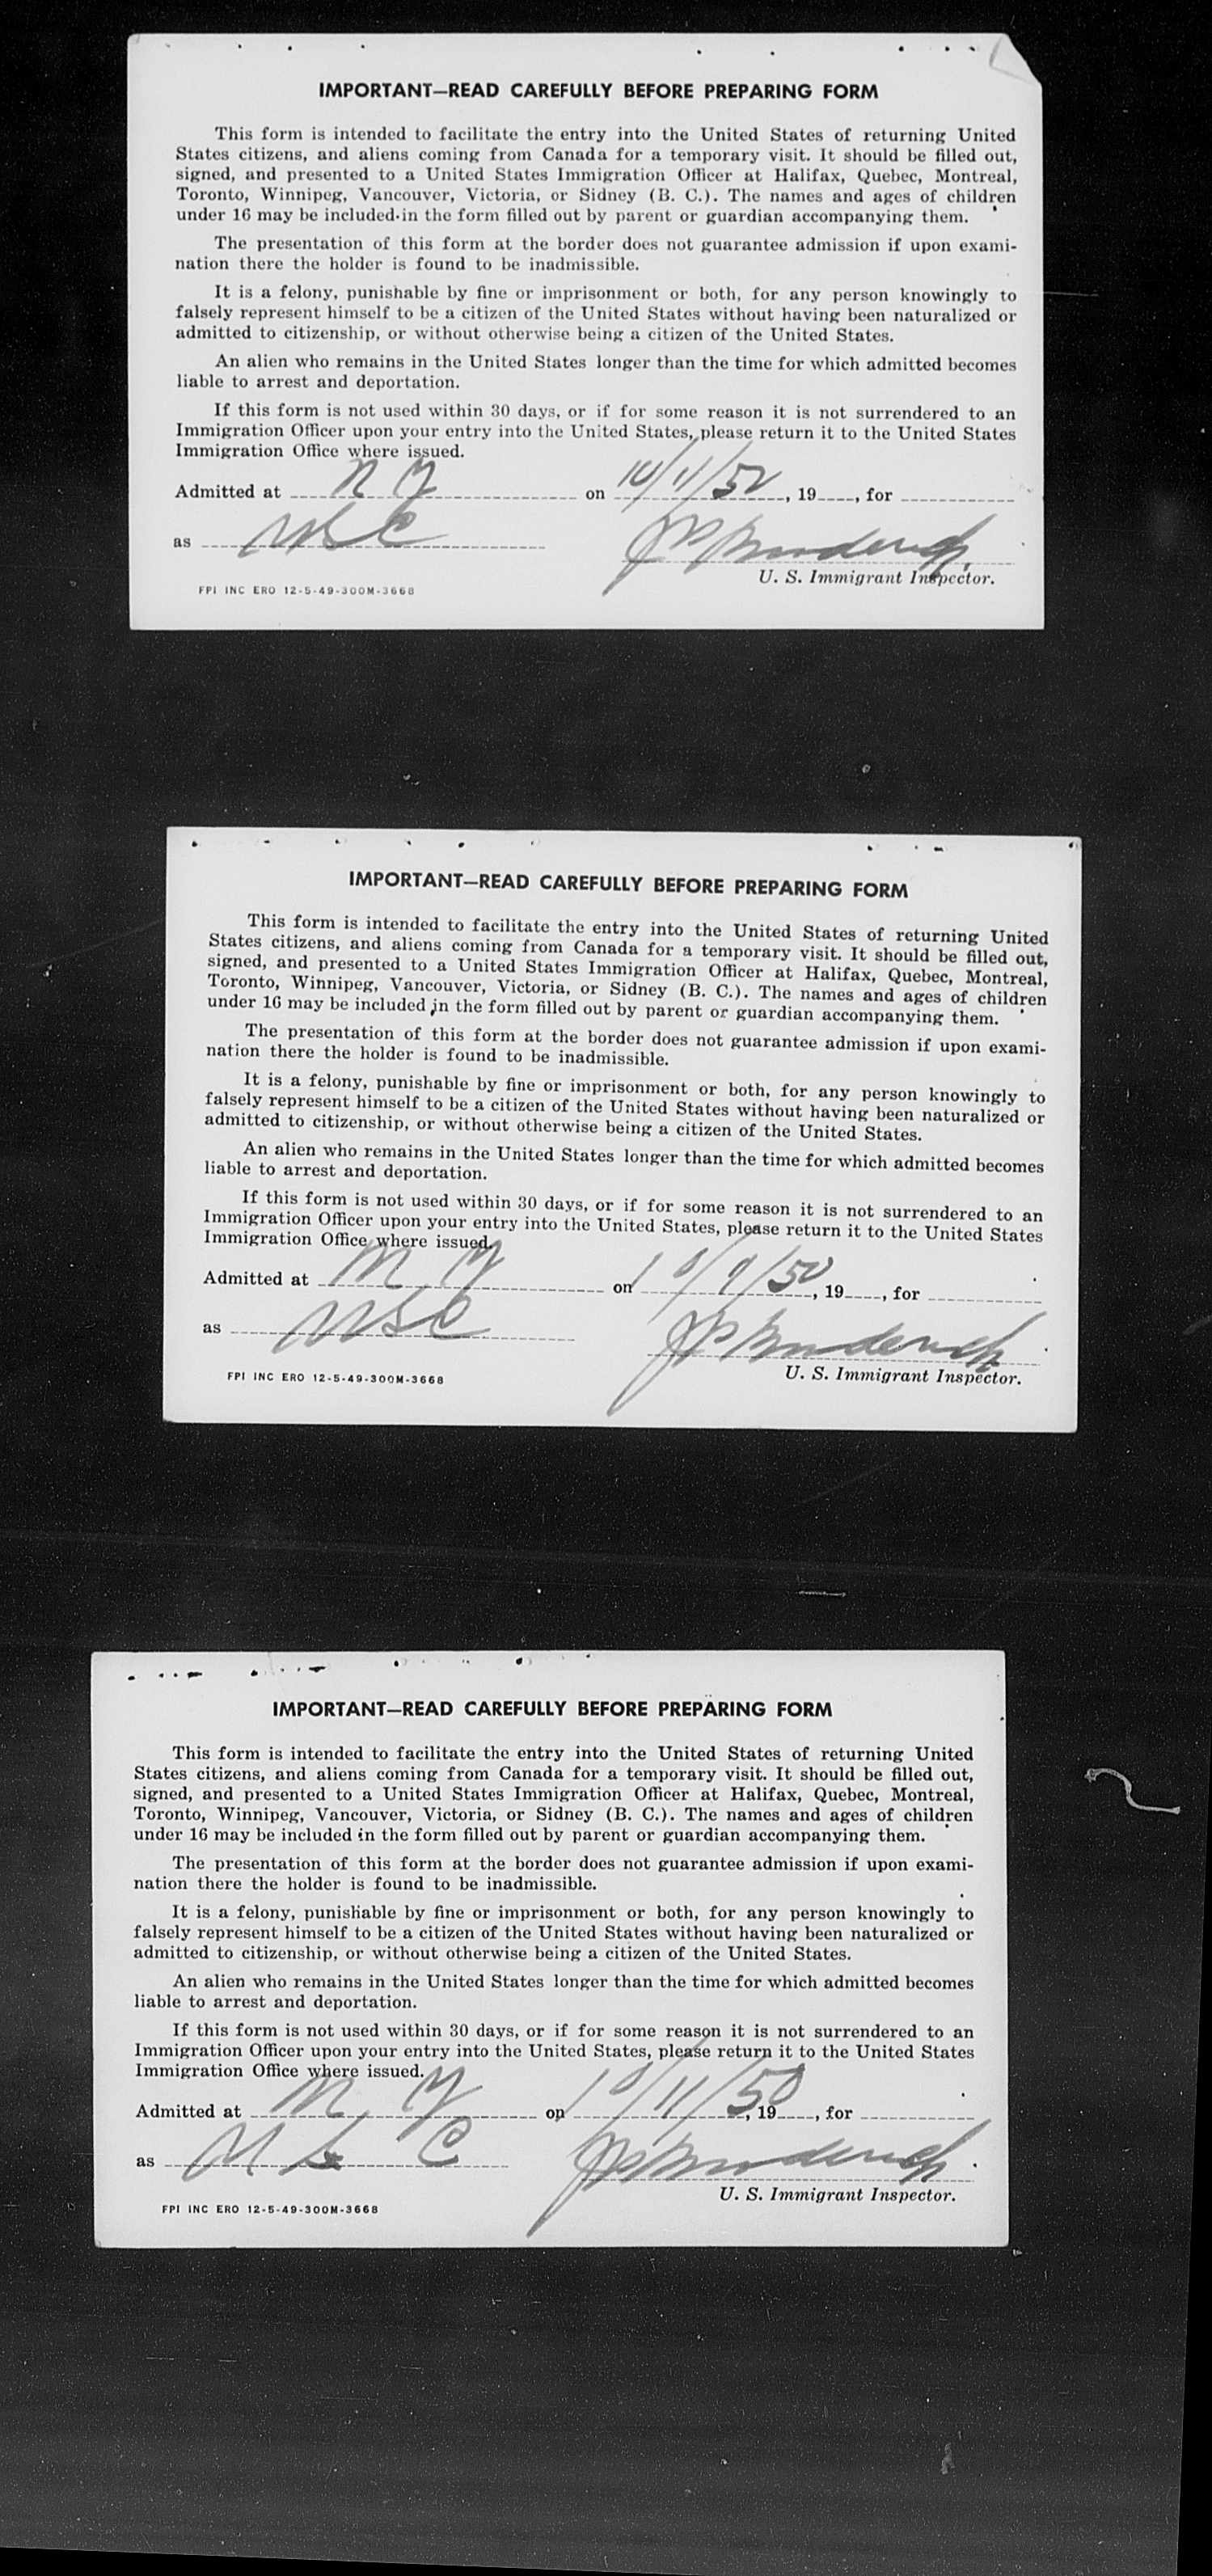 IMPORTANT—READ CAREFULLY BEFORE PREPARING FORM
This form is intended to facilitate the entry into the United States of returning United
States citizens, and aliens coming from Canada for a temporary visit. It should be filled out,
signed, and presented to a United States Immigration Officer at Halifax, Quebec, Montreal,
Toronto, Winnipeg, Vancouver, Victoria, or Sidney (B. C.). The names and ages of children
under 16 may be included in the form filled out by parent or guardian accompanying them.
The presentation of this form at the border does not guarantee admission if upon exami-
nation there the holder is found to be inadmissible.
It is a felony, punishable by fine or imprisonment or both, for any person knowingly to
falsely represent himself to be a citizen of the United States without having been naturalized or
admitted to citizenship, or without otherwise being a citizen of the United States.
An alien who remains in the United States longer than the time for which admitted becomes
liable to arrest and deportation.
If this form is not used within 30 days, or if for some reason it is not surrendered to an
Immigration Officer upon your entry into the United States, please return it to the United States
Immigration Office where issued.
Admitted at N Y on 10/11/50, 19, for
as USC
U. S. Immigrant Inspector.
FPI INC ERO 12-5-49-300M-3668
IMPORTANT—READ CAREFULLY BEFORE PREPARING FORM
This form is intended to facilitate the entry into the United States of returning United
States citizens, and aliens coming from Canada for a temporary visit. It should be filled out,
signed, and presented to a United States Immigration Officer at Halifax, Quebec, Montreal,
Toronto, Winnipeg, Vancouver, Victoria, or Sidney (B. C.). The names and ages of children
under 16 may be included in the form filled out by parent or guardian accompanying them.
The presentation of this form at the border does not guarantee admission if upon exami-
nation there the holder is found to be inadmissible.
It is a felony, punishable by fine or imprisonment or both, for any person knowingly to
falsely represent himself to be a citizen of the United States without having been naturalized or
admitted to citizenship, or without otherwise being a citizen of the United States.
An alien who remains in the United States longer than the time for which admitted becomes
liable to arrest and deportation.
If this form is not used within 30 days, or if for some reason it is not surrendered to an
Immigration Officer upon your entry into the United States, please return it to the United States
Immigration Office where issued.
Admitted at N Y on, 19, for
as USC
U. S. Immigrant Inspector.
FPI INC ERO 12-5-49-300M-3668
IMPORTANT—READ CAREFULLY BEFORE PREPARING FORM
This form is intended to facilitate the entry into the United States of returning United
States citizens, and aliens coming from Canada for a temporary visit. It should be filled out,
signed, and presented to a United States Immigration Officer at Halifax, Quebec, Montreal,
Toronto, Winnipeg, Vancouver, Victoria, or Sidney (B. C.). The names and ages of children
under 16 may be included in the form filled out by parent or guardian accompanying them.
The presentation of this form at the border does not guarantee admission if upon exami-
nation there the holder is found to be inadmissible.
It is a felony, punishable by fine or imprisonment or both, for any person knowingly to
falsely represent himself to be a citizen of the United States without having been naturalized or
admitted to citizenship, or without otherwise being a citizen of the United States.
An alien who remains in the United States longer than the time for which admitted becomes
liable to arrest and deportation.
If this form is not used within 30 days, or if for some reason it is not surrendered to an
Immigration Officer upon your entry into the United States, please return it to the United States
Immigration Office where issued.
Admitted at N Y on 10/11/50, 19, for
as U S C
U. S. Immigrant Inspector.
FPI INC ERO 12-5-49-300M-3668